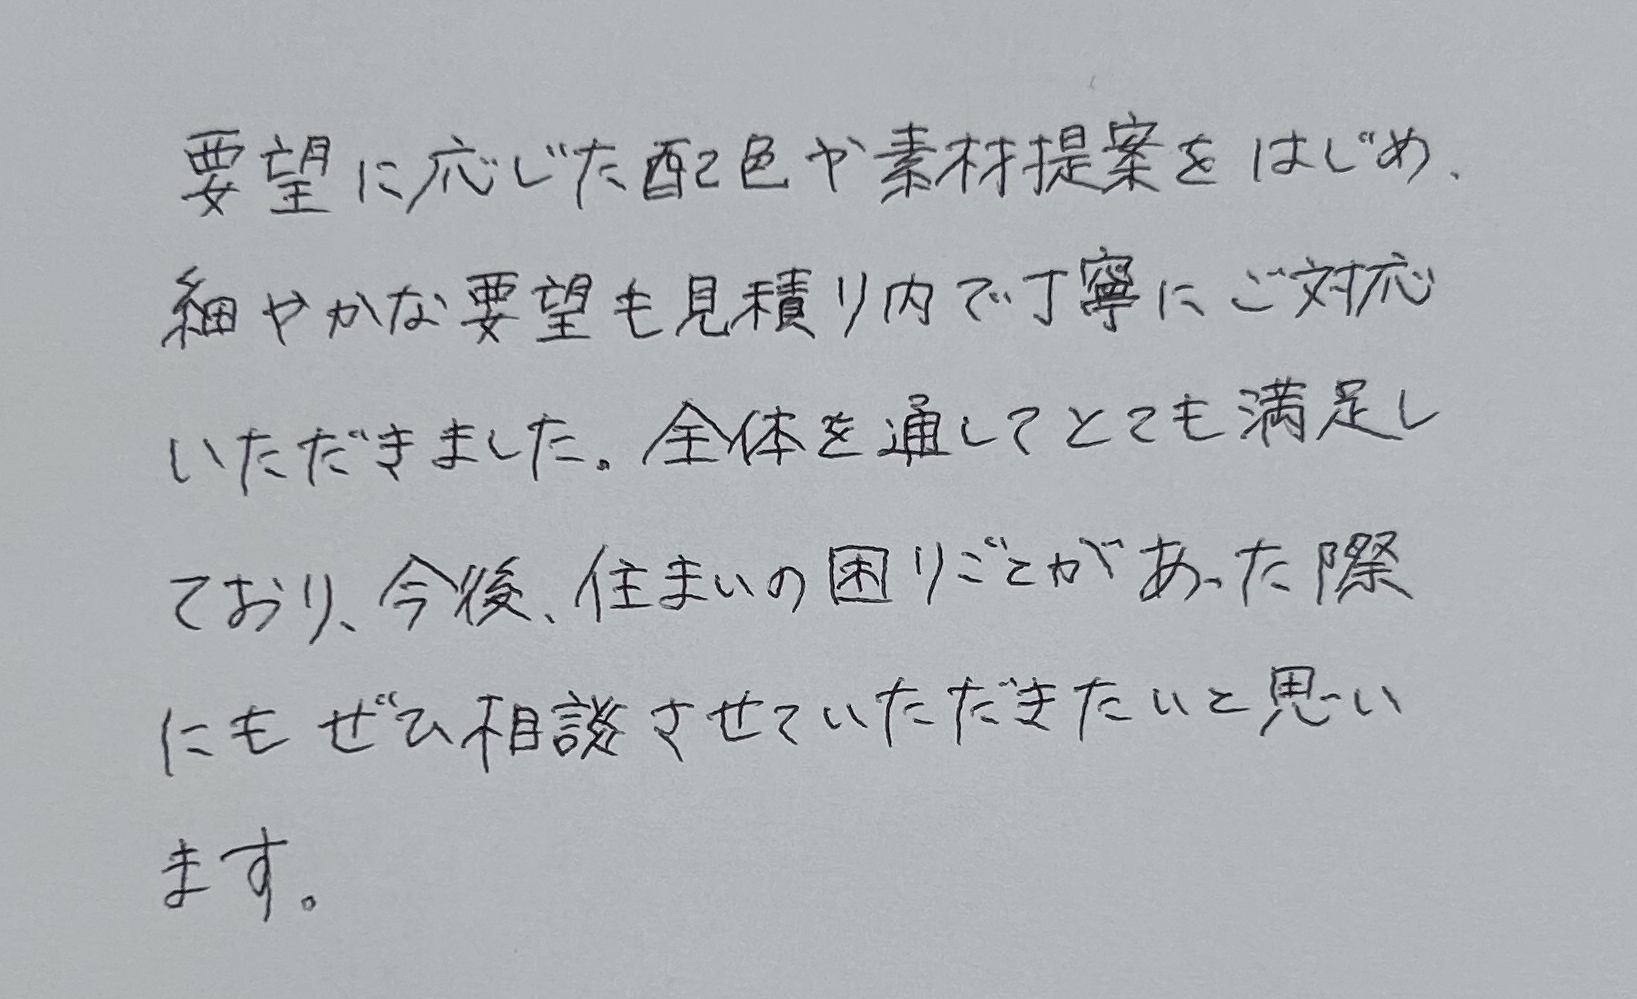 要望に応じた配色や素材提案をはじめ、
細やかな要望も見積り内で丁寧にご対応
いただきました。全体を通してとても満足し
ており、今後、住まいの困りごとがあった際
にもぜひ相談させていただきたいと思い
ます。